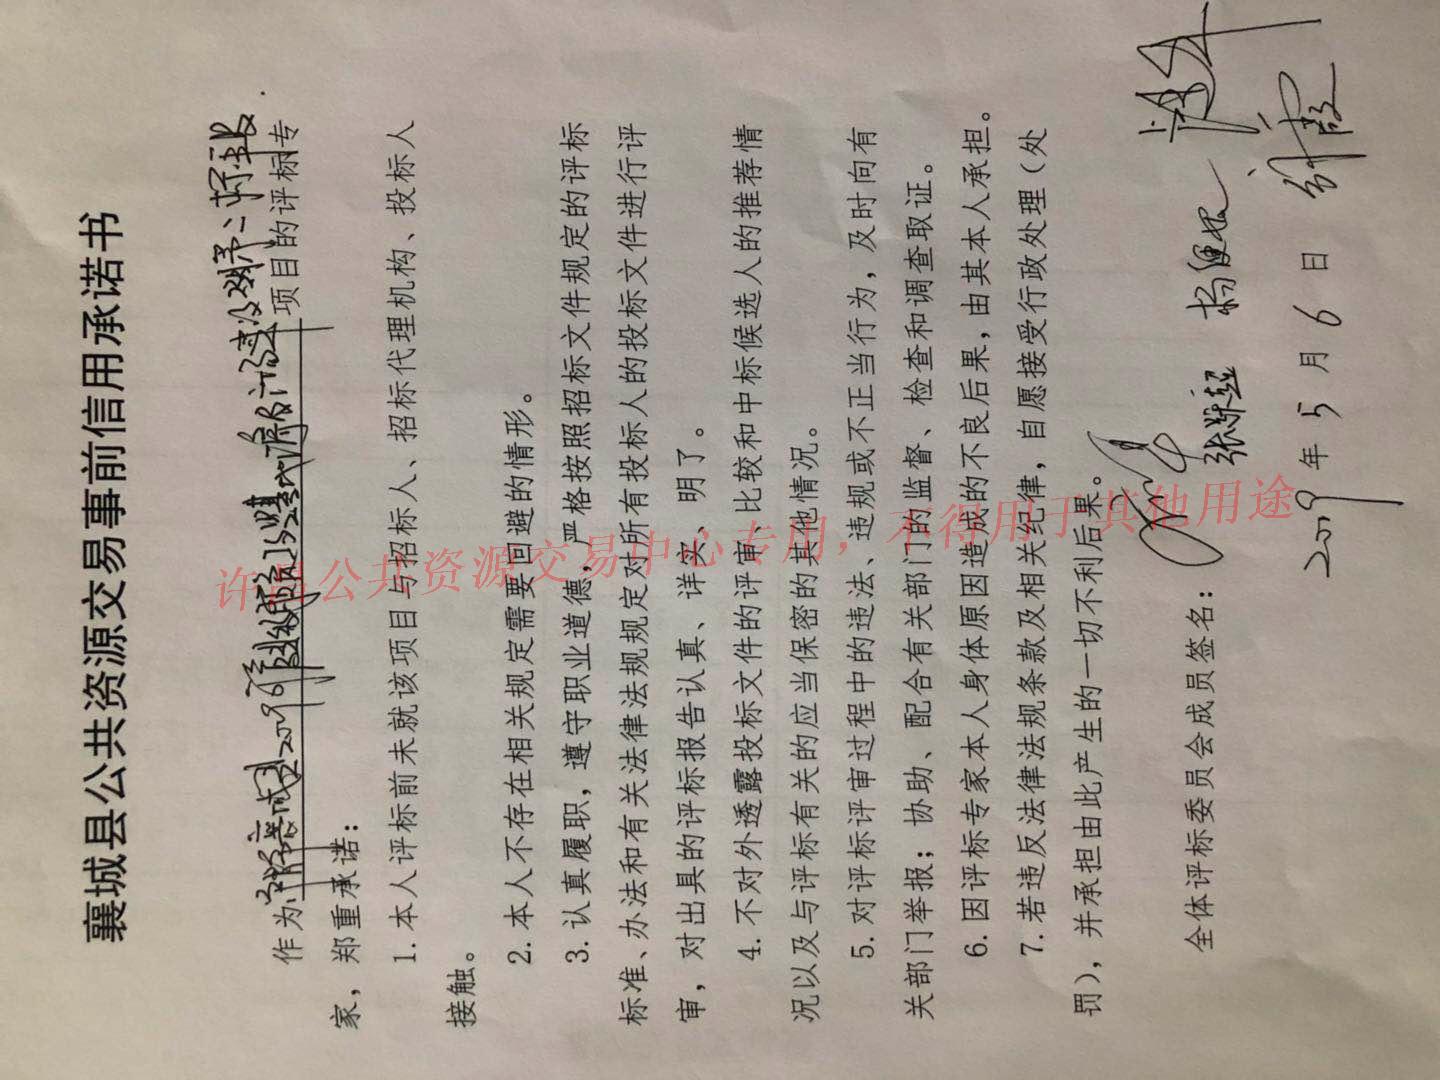 襄城县公共资源交易事前信用承诺书
作为 2019年 项目的评标专
家，郑重承诺：
1.本人评标前未就该项目与招标人、招标代理机构、投标人
接触。
2.本人不存在相关规定需要回避的情形。
3.认真履职，遵守职业道德，严格按照招标文件规定的评标
标准、办法和有关法律法规规定对所有投标人的投标文件进行评
审，对出具的评标报告认真、详实、明了。
4.不对外透露投标文件的评审、比较和中标候选人的推荐情
况以及与评标有关的应当保密的其他情况。
5.对评标评审过程中的违法、违规或不正当行为，及时向有
关部门举报；协助、配合有关部门的监督、检查和调查取证。
6.因评标专家本人身体原因造成的不良后果，由其本人承担。
7.若违反法律法规条款及相关纪律，自愿接受行政处理（处
罚），并承担由此产生的一切不利后果。
全体评标委员会成员签名：
2019年5月6日
许昌公共资源交易中心专用，不得用于其他用途